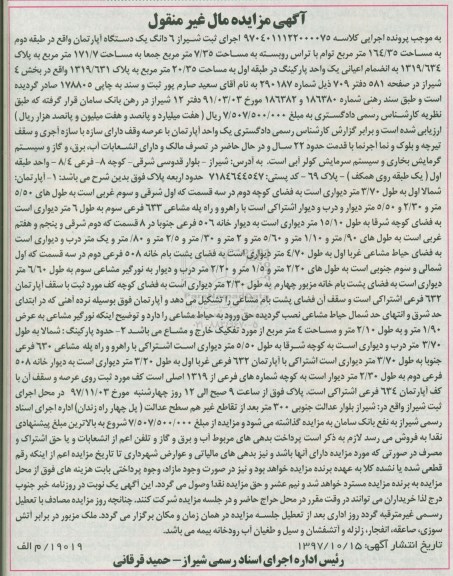 آگهی مزایده مال غیر منقول
به موجب پرونده اجرایی کلاسه ۹۷۰۴۰۱۱۱۲۲۰۰۰۰۷۵ اجرای ثبت شیراز ۶ دانگ یک دستگاه آپارتمان واقع در طبقه دوم
به مساحت ۱۶۴/۳۵ متر مربع توام با تراس روبسته به مساحت ۷/۳۵ متر مربع جمعا به مساحت ۱۷۱/۷ متر مربع به پلاک
۱۳۱۹/۶۳۴ به انضمام اعیانی یک واحد پارکینگ در طبقه اول به مساحت ۲۰/۳۵ متر مربع به پلاک ۱۳۱۹/۶۳۱ واقع در بخش ۴
شیراز در صفحه ۵۸۱ دفتر ۷۰۹ ذیل شماره ۲۹۰۱۸۷ به نام آقای سعید صارم پور ثبت و سند به چاپی ۱۷۸۸۰۵ صادر گردیده
است و طبق سند رهنی شماره ۱۸۶۳۸۰ و ۱۸۶۳۸۲ مورخ ۹۱/۰۳/۰۳ دفتر ۱۲ شیراز در رهن بانک سامان قرار گرفته که طبق
نظریه کارشناس رسمی دادگستری به مبلغ ۷/۵۰۷/۵۰۰/۰۰۰ ریال ( هفت میلیارد و پانصد و هفت میلیون و پانصد هزار ریال )
ارزیابی شده است و برابر گزارش کارشناس رسمی دادگستری یک واحد آپارتمان با عرصه وقف دارای سازه با سازه آجری و سقف
تیرچه و بلوک و نما آجرنما با قدمت حدود ۲۲ سال و در حال حاضر در تصرف مالک و دارای انشعابات آب، برق، و گاز و سیستم
گرمایش بخاری و سیستم سرمایش کولر آبی است. به آدرس: شیراز - بلوار قدوسی شرقی- کوچه ۸- فرعی ۸/۴ - واحد طبقه
اول ( یک طبقه روی همکف ) - پلاک ۶۹ - کد پستی: ۷۱۸۴۶۴۴۵۴۷ حدود اربعه پلاک فوق بدین شرح می باشد: ۱- آپارتمان:
شمالا اول به طول ۳/۷۰ متر دیواری است به فضای کوچه دوم در سه قسمت که اول شرقی و سوم غربی است به طول های ۵/۵۰
متر و ۲/۳۰ و ۵/۵۰ متر دیوار و درب و دیوار اشتراکی است با راهرو و راه پله مشاعی ۶۳۳ فرعی سوم به طول ۶ متر دیواری است
به فضای کوچه شرقا به طول ۱۵/۱۰ متر دیواری است به دیوار خانه ۵۰۶ فرعی جنوبا در ۸ قسمت که دوم شرقی و پنجم و هفتم
غربی است به طول های ۹۰/ متر و ۱/۱۰ متر و ۵/۶۰ متر و ۲ متر و ۳۰/ متر و ۲/۵ متر و ۸۰/ متر و یک متر درب و دیواری است
به فضای حیاط مشاعی غربا اول به طول ۴/۷۰ متر دیواری است به فضای پشت بام خانه ۵۰۸ فرعی دوم در سه قسمت که اول
شمالی و سوم جنوبی است به طول های ۲/۲۰ متر و ۱/۵ متر و ۲/۲۰ متر درب و دیوار به نورگیر مشاعی سوم به طول ۶/۶۰ متر
دیواری است به فضای پشت بام خانه مزبور چهارم به طول ۲/۳۰ متر دیواری است به فضای کوچه کف مورد ثبت با سقف آپارتمان
۶۳۲ فرعی اشتراکی است و سقف آن فضای پشت بام مشاعی را تشکیل می دهد و آپارتمان فوق بوسیله نرده آهنی که در ابتدای
حد شرق و انتهای حد شمال حیاط مشاعی نصب گردیده حق ورود به حیاط مشاعی را دارد و توضیح اینکه نورگیر مشاعی به عرض
۱/۹۰ متر و به طول ۲/۱۰ متر و مساحت ۴ متر مربع از مورد تفکیک خارج و مشاع می باشد ۲- حدود پارکینگ: شمالا به طول
۳/۷۰ متر درب و دیواری است به کوچه شرقا به طول ۵/۵۰ متر دیواری است اشتراکی با راهرو و راه پله مشاعی ۶۳۰ فرعی
جنوبا به طول ۳/۷۰ متر دیواری است اشتراکی با آپارتمان ۶۳۲ فرعی غربا اول به طول ۳/۲۰ متر دیواری است به دیوار خانه ۵۰۸
فرعی دوم به طول ۲/۳۰ متر دیوار است به کوچه شماره های فرعی از ۱۳۱۹ اصلی است کف مورد ثبت روی عرصه و سقف آن با
کف آپارتمان ۶۳۴ فرعی اشتراکی است. پلاک فوق از ساعت ۹ صبح الی ۱۲ روز چهارشنبه مورخ ۹۷/۱۱/۰۳ در محل اجرای
ثبت شیراز واقع در: شیراز بلوار عدالت جنوبی ۳۰۰ متر بعد از تقاطع غیر هم سطح عدالت ( پل چهار راه زندان) اداره اجرای اسناد
رسمی شیراز به نفع بانک سامان به مزایده گذاشته می شود و مزایده از مبلغ ۷/۵۰۷/۵۰۰/۰۰۰ شروع به بالاترین مبلغ پیشنهادی
نقدا به فروش می رسد لازم به ذکر است پرداخت بدهی های مربوط آب و برق و گاز و تلفن اعم از انشعابات و یا حق اشتراک و
مصرف در صورتی که مورد مزایده دارای آنها باشد و نیز بدهی های مالیاتی و عوارض شهرداری تا تاریخ مزایده اعم از اینکه رقم
قطعی شده یا نشده کلا به عهده برنده مزایده خواهد بود و نیز در صورت وجود مازاد، وجوه پرداختی بابت هزینه های فوق از محل
مزایده به برنده مزایده مسترد خواهد شد و نیم عشر و حق مزایده نقدا وصول می گردد. این آگهی یک نوبت در روزنامه خبر جنوب
درج لذا خریداران می توانند در وقت مقرر در محل حراج حاضر و در جلسه مزایده شرکت کنند. چنانچه روز مزایده مصادف با تعطیل
رسمی غیرمترقبه گردد روز اداری بعد از تعطیل جلسه مزایده در همان زمان و مکان برگزار می گردد. ملک مزبور در برابر آتش
سوزی، صاعقه، انفجار، زلزله و آتشفشان و سیل و طغیان آب رودخانه بیمه می باشد.
تاریخ انتشار آگهی: ۱۳۹۷/۱۰/۱۵ ۱۹۰۱۹/م الف
رئیس اداره اجرای اسناد رسمی شیراز- حمید قرقانی